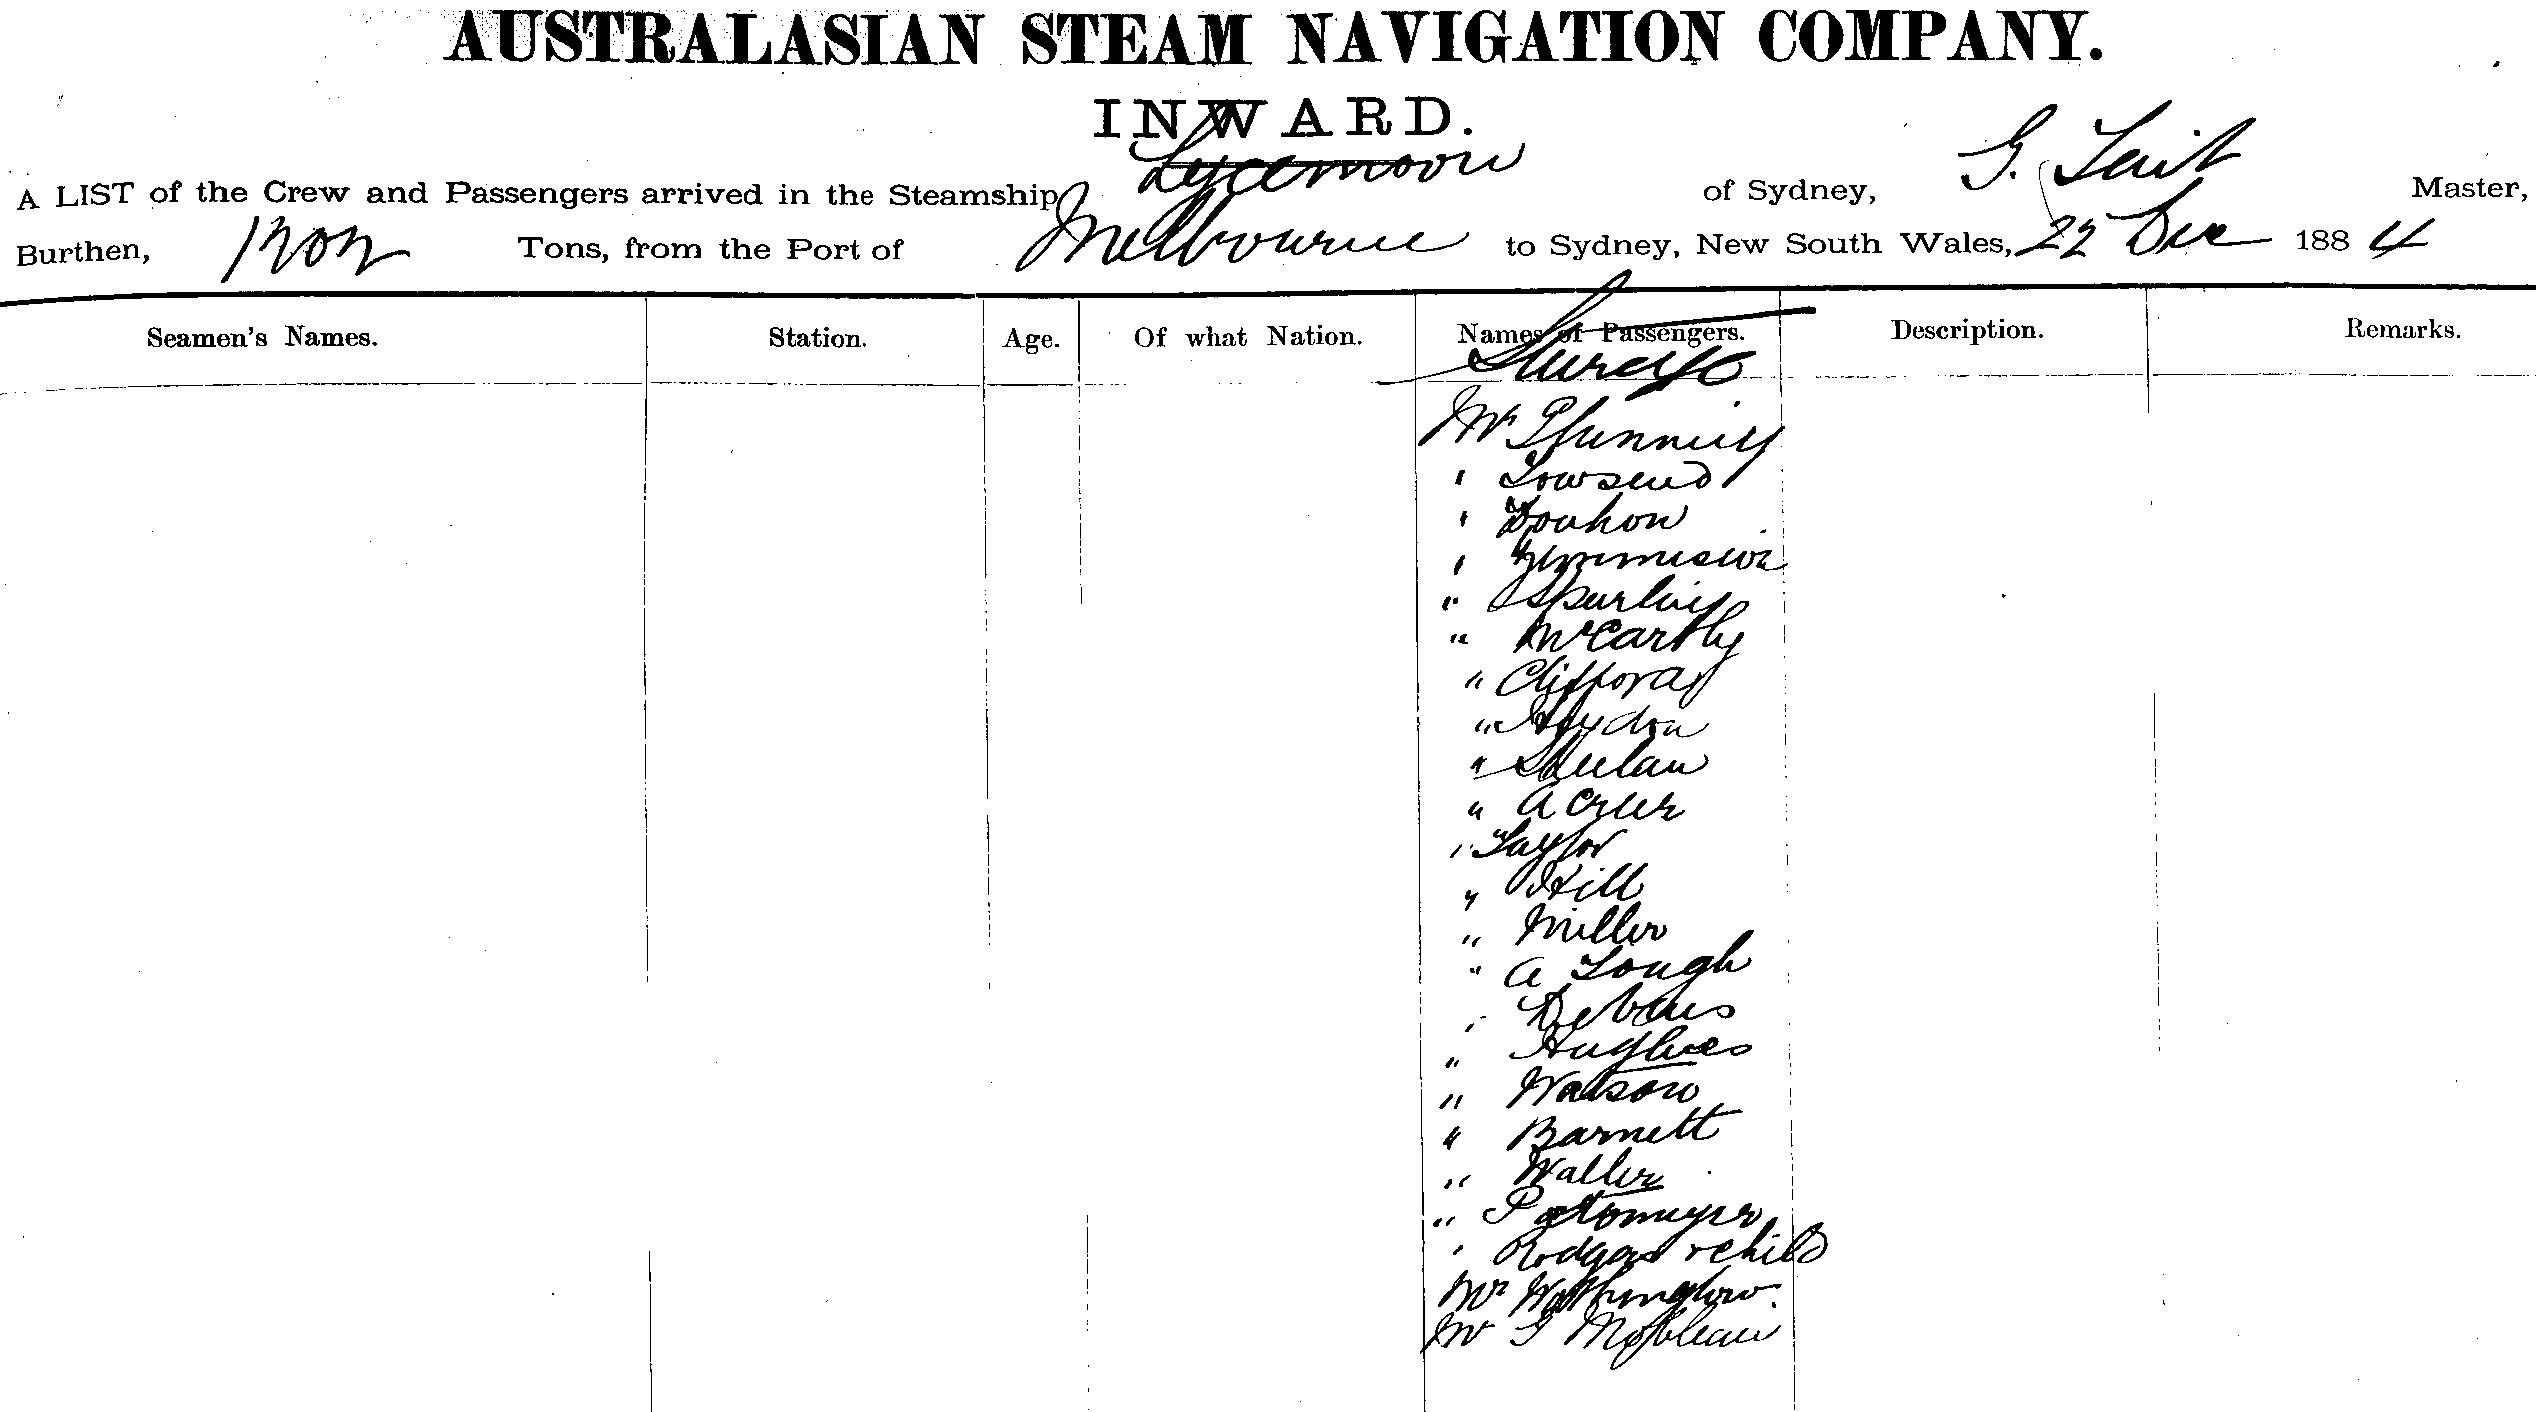 AUSTRALASIAN STEAM NAVIGATION COMPANY.
INWARD.
A LIST of the Crew and Passengers arrived in the Steamship Lyeemoon of Sydney, G. Tait Master,
Burthen, Tons, from the Port of Melbourne to Sydney, New South Wales, 22 Dec 1884
Seamen's Names. Station. Age. Of what Nation. Names of Passengers. Description. Remarks.
Mr
' Towsend
'
'
" Spurling
" McCarthy
" Clifford
" Haydon
"
" A
" Taylor
" Hill
" Miller
" A Lough
"
" Hughes
" Watson
" Barnett
" Waller
" P
' Rodgers & child
Mr
Mr G